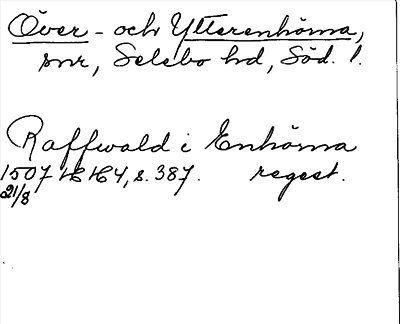 Över- och Ytterenhörna,
snr, Selebo hd, Söd. l.
Raffwald i Enhörna
1507 HH 4, s. 387. regest.
21/8